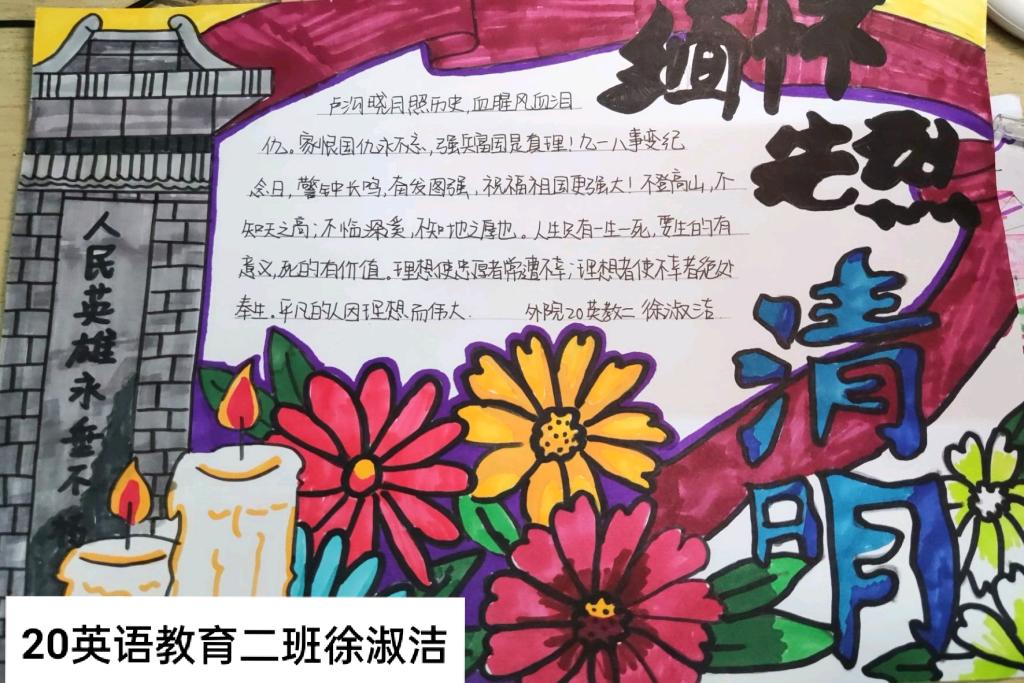 缅怀
先烈
清
明
卢沟晓月照历史,血腥风血泪
仇。家恨国仇永不忘,强兵富国是真理!九一八事变纪
念日,警钟长鸣,奋发图强,祝福祖国更强大!不登高山,不
知天之高;不临深溪,不知地之厚也。人生只有一生一死,要生的有
意义,死的有价值。理想使忠厚者常遭不幸;理想者使不幸者绝处
奉生。平凡的人因理想而伟大. 外院20英教二 徐淑洁
人民英雄永垂不
20英语教育二班徐淑洁